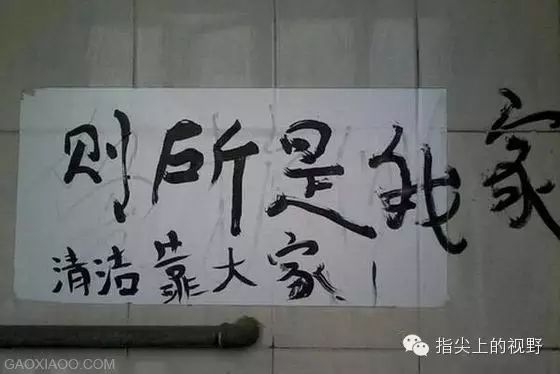 则所是我家
清洁靠大家!
指尖上的视野
GAOXIAOO.COM